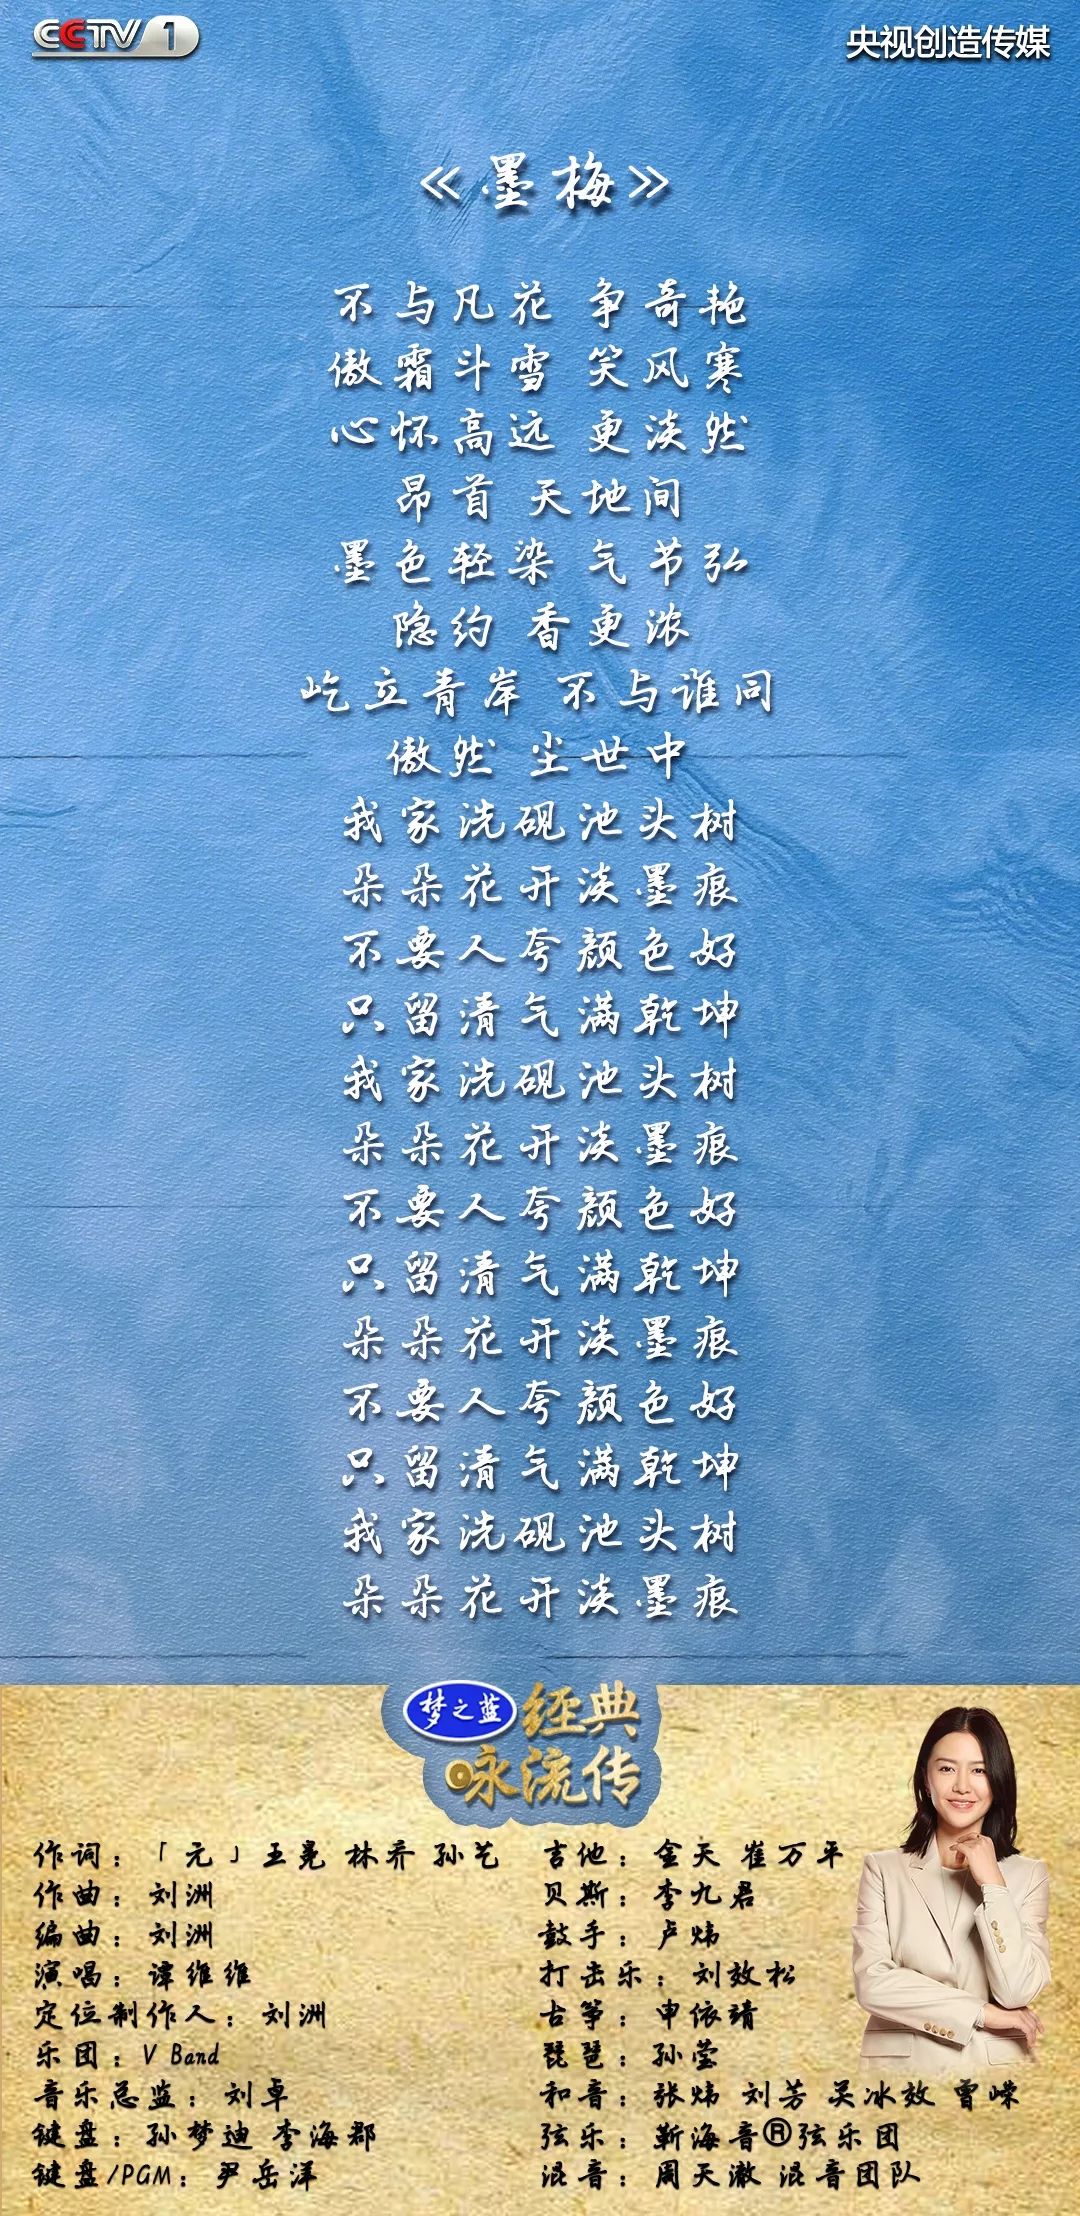 CCTV 1
央视创造传媒
《墨梅》
不与凡花 争奇艳
傲霜斗雪 笑风寒
心怀高远 更淡然
昂首 天地间
墨色轻染 气节弘
隐约 香更浓
屹立青岸 不与谁同
傲然 尘世中
我家洗砚池头树
朵朵花开淡墨痕
不要人夸颜色好
只留清气满乾坤
我家洗砚池头树
朵朵花开淡墨痕
不要人夸颜色好
只留清气满乾坤
朵朵花开淡墨痕
不要人夸颜色好
只留清气满乾坤
我家洗砚池头树
朵朵花开淡墨痕
梦之蓝 经典
咏流传
作词：「元」王冕 林乔 孙艺
作曲：刘洲
编曲：刘洲
演唱：谭维维
定位制作人：刘洲
乐团：V Band
音乐总监：刘卓
键盘：孙梦迪 李海郡
键盘/PGM：尹岳洋
吉他：金天 崔万平
贝斯：李九君
鼓手：卢炜
打击乐：刘效松
古筝：申依靖
琵琶：孙莹
和音：张炜 刘芳 吴冰效 曾嵘
弦乐：靳海音®弦乐团
混音：周天澈 混音团队